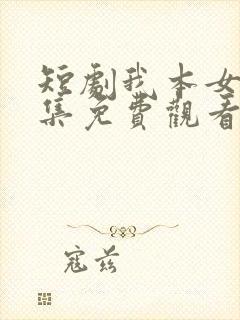 短劇我本女
集免費觀看
寇茲